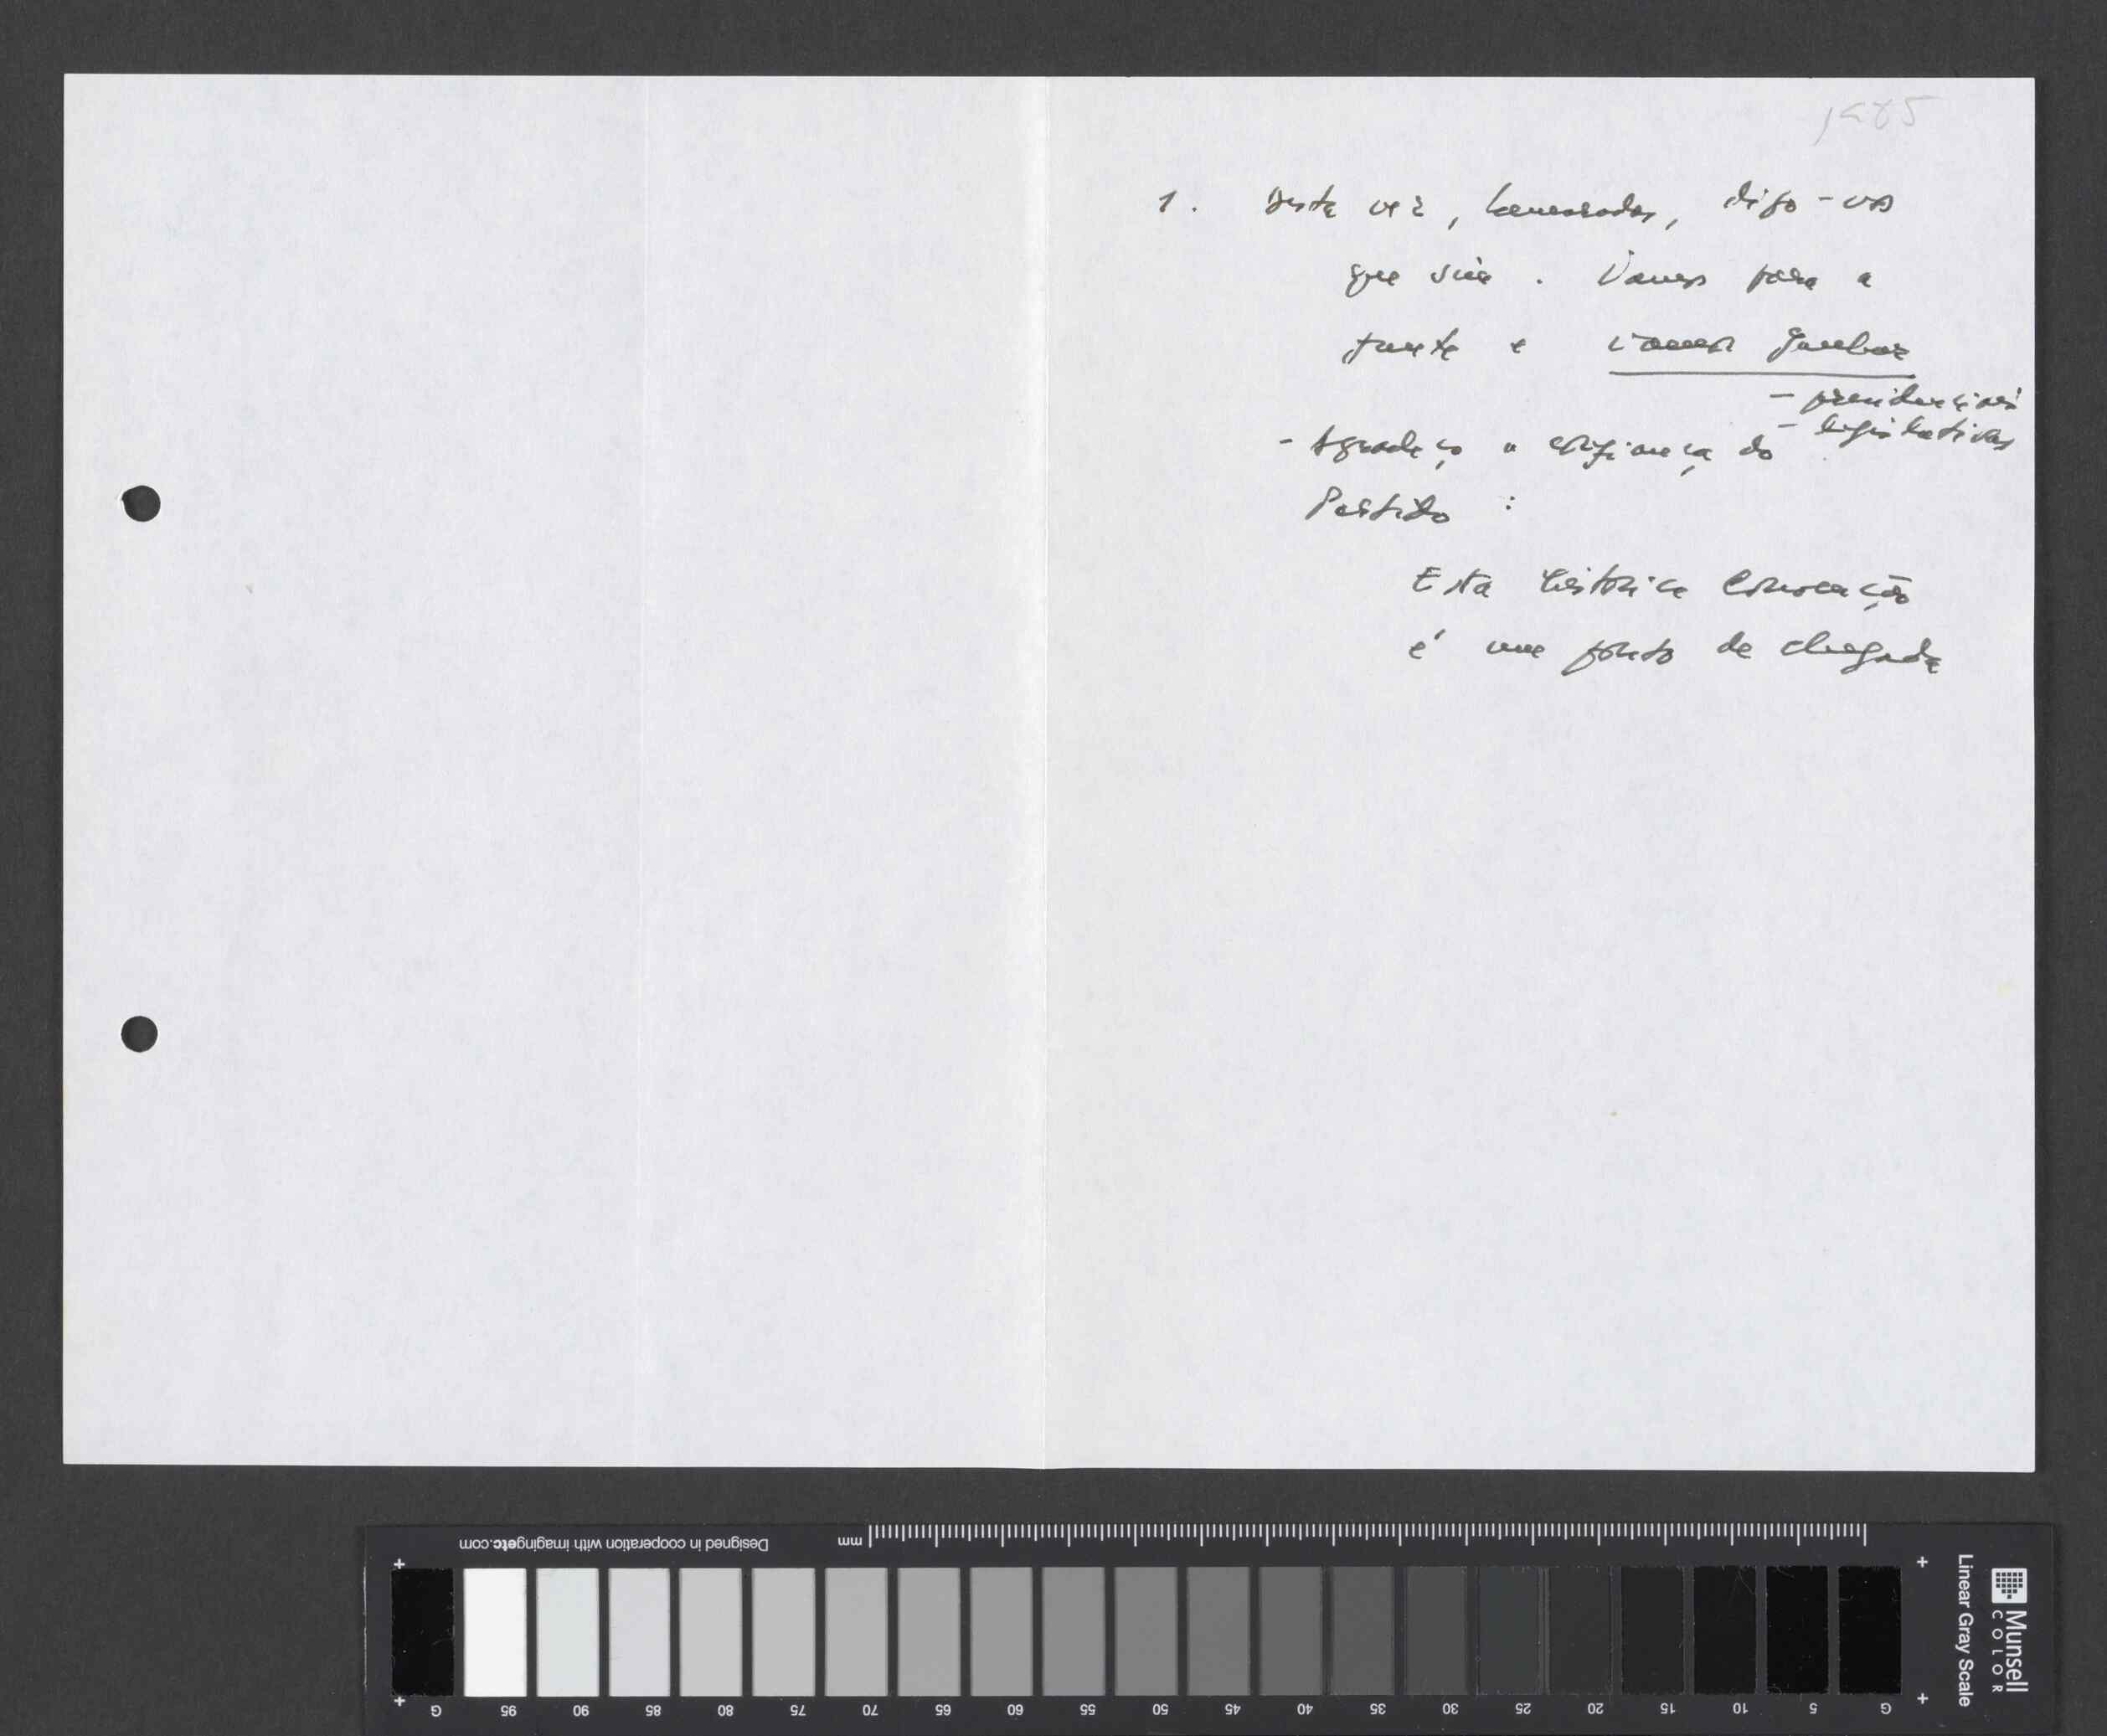 1985
1. Desta vez, Camaradas, digo-vos
que sim. Vamos para a
frente e vamos ganhar
- presidenciais
- legislativas
- Agradeço a confiança do
Partido :
Esta histórica Convenção
é um ponto de chegada
Designed in cooperation with imagingetc.com
mm
G 95 90 85 80 75 70 65 60 55 50 45 40 35 30 25 20 15 10 5 G
Linear Gray Scale
Munsell
COLOR